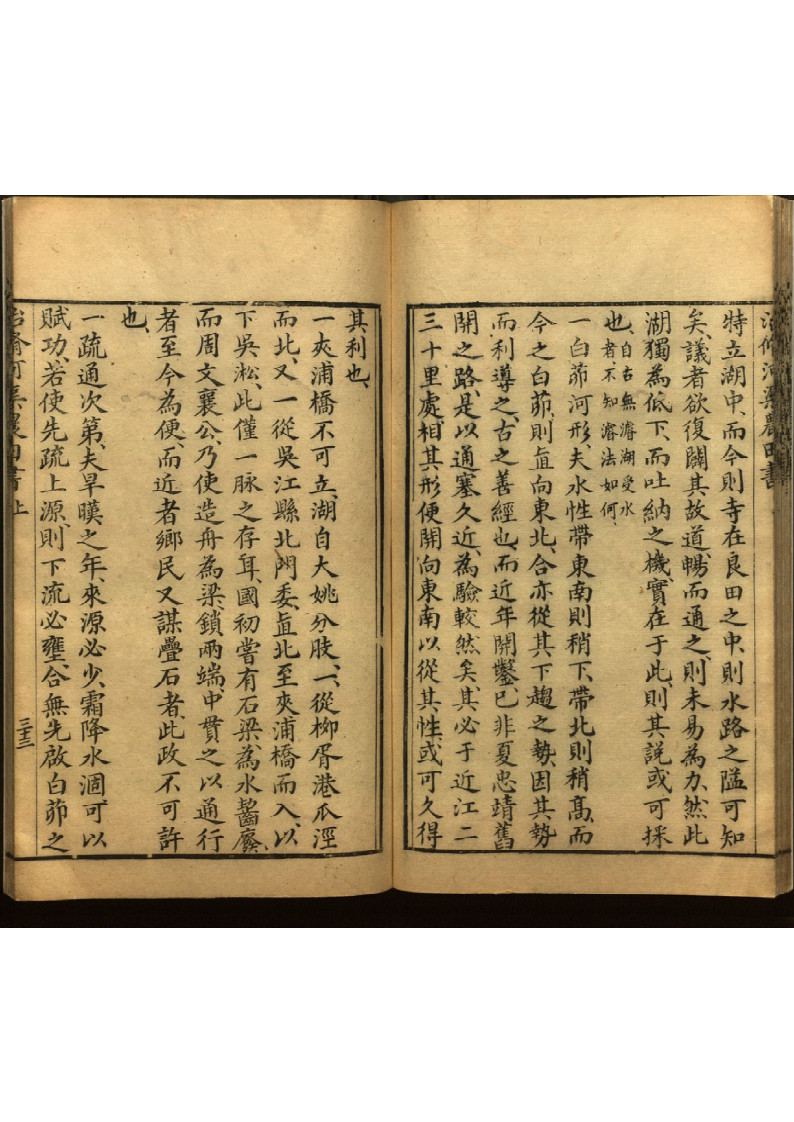 特立湖中、而今則寺在良田之中、則水路之隘可知
矣、議者欲復闢其故道、暢而通之、則未易為力、然此
湖獨為低下、而吐納之機、實在于此、則其説或可採
也、自古無濬湖受水
者、不知濬法如何、
一白茆河形、夫水性帶東南則稍下、帶北則稍髙、而
今之白茆、則直向東北、合亦從其下趨之勢、因其勢
而利導之、古之善經也、而近年開鑿、已非夏忠靖舊
開之路、是以通塞久近、為驗較然矣、其必于近江二
三十里處、相其形便、開向東南、以從其性、或可久得
其利也、
一夾浦橋不可立、湖自大姚分肢、一、從柳胥港瓜涇
而北、又一從吳江縣北門委、直北至夾浦橋而入、以
下吳淞、此僅一脉之存耳、國初嘗有石梁、為水齧廢、
而周文襄公、乃使造舟為梁、鎖兩端、中貫之以通行
者、至今為便、而近者鄉民又謀疊石者、此政不可許
也、
一疏通次第、夫旱暵之年、來源必少、霜降水涸、可以
賦功、若使先疏上源、則下流必壅、合無先啟白茆之
三十三